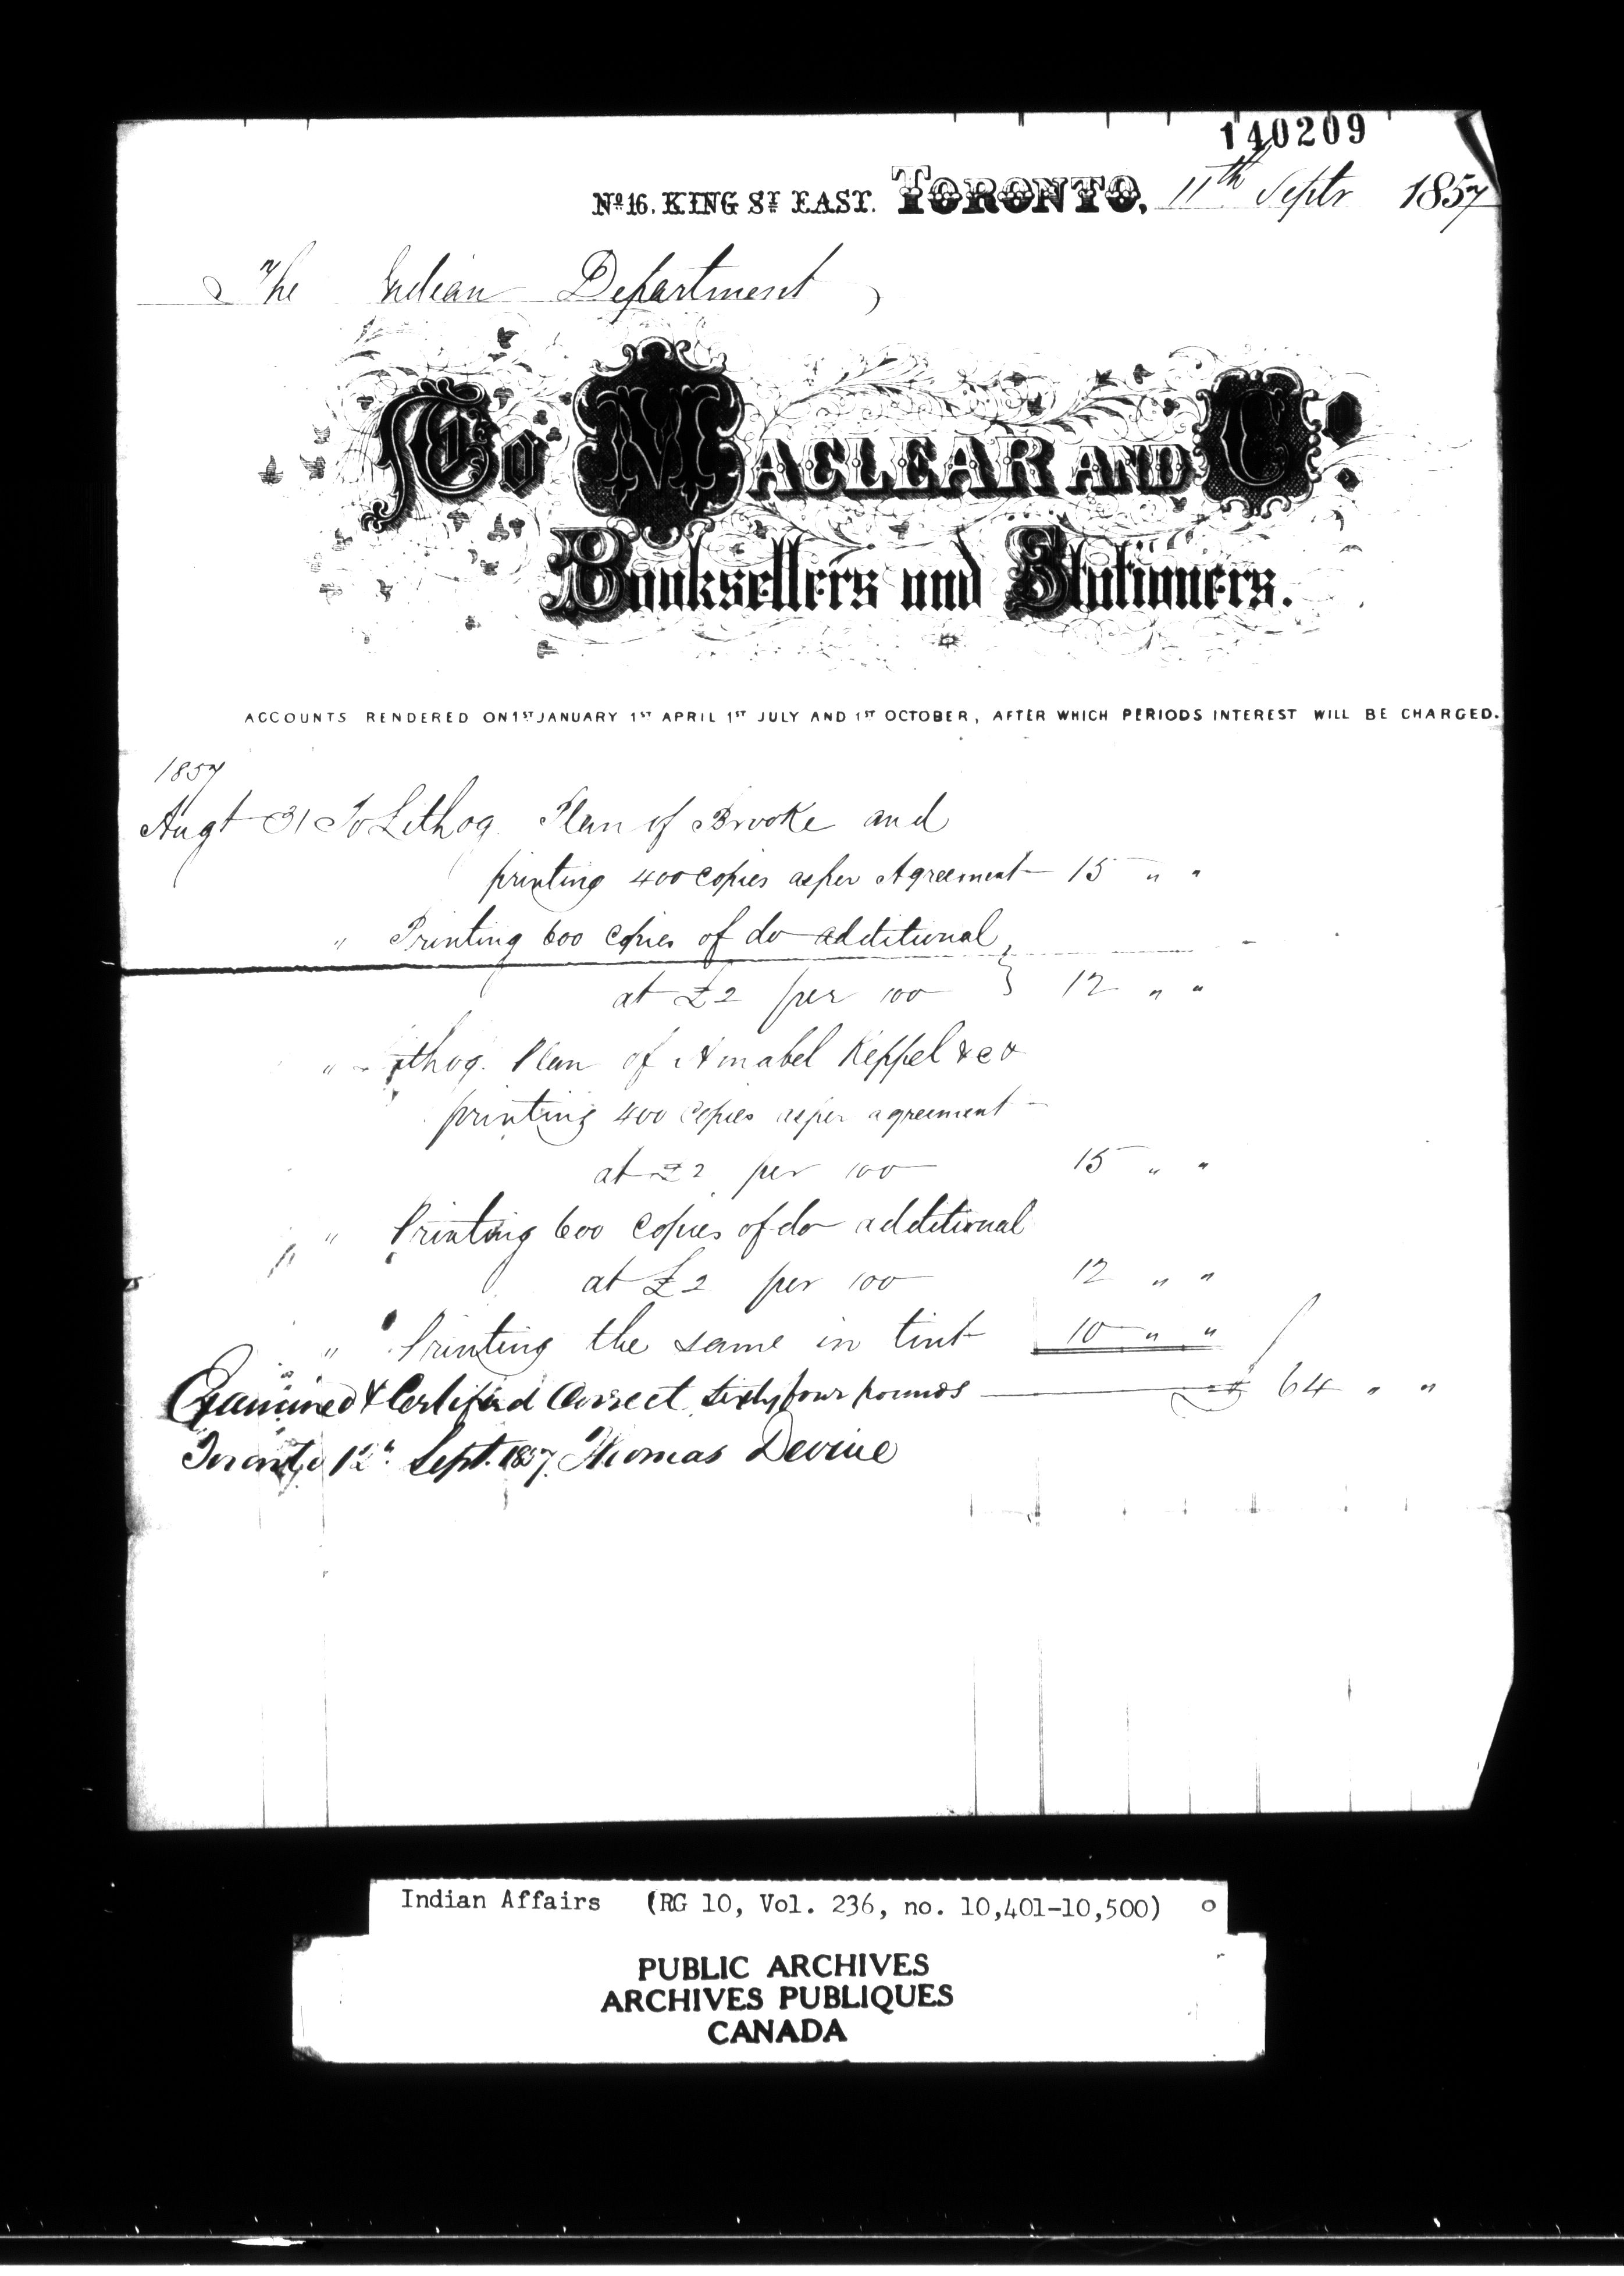 140209
No 16. KING ST EAST. TORONTO, 11th Septr 1857
The Indian Department
To MACLEAR AND Co.
Booksellers and Stationers.
ACCOUNTS RENDERED ON 1ST JANUARY 1ST APRIL 1ST JULY AND 1ST OCTOBER, AFTER WHICH PERIODS INTEREST WILL BE CHARGED.
1857
Augt 31 To Lithog. Plan of Brooke and
printing 400 copies as per Agreement 15 " "
" Printing 600 copies of do additional
at £2 per 100 } 12 " "
" Lithog. Plan of Amabel Keppel &c &
printing 400 copies as per agreement
at £2 per 100 15 " "
" Printing 600 copies of do additional
at £2 per 100 12 " "
" Printing the same in tint 10 " "
Examined & Certified Correct Sixty four pounds £ 64 " "
Toronto 12th Sept. 1857. Thomas Devine
Indian Affairs (RG 10, Vol. 236, no. 10,401-10,500)
PUBLIC ARCHIVES
ARCHIVES PUBLIQUES
CANADA